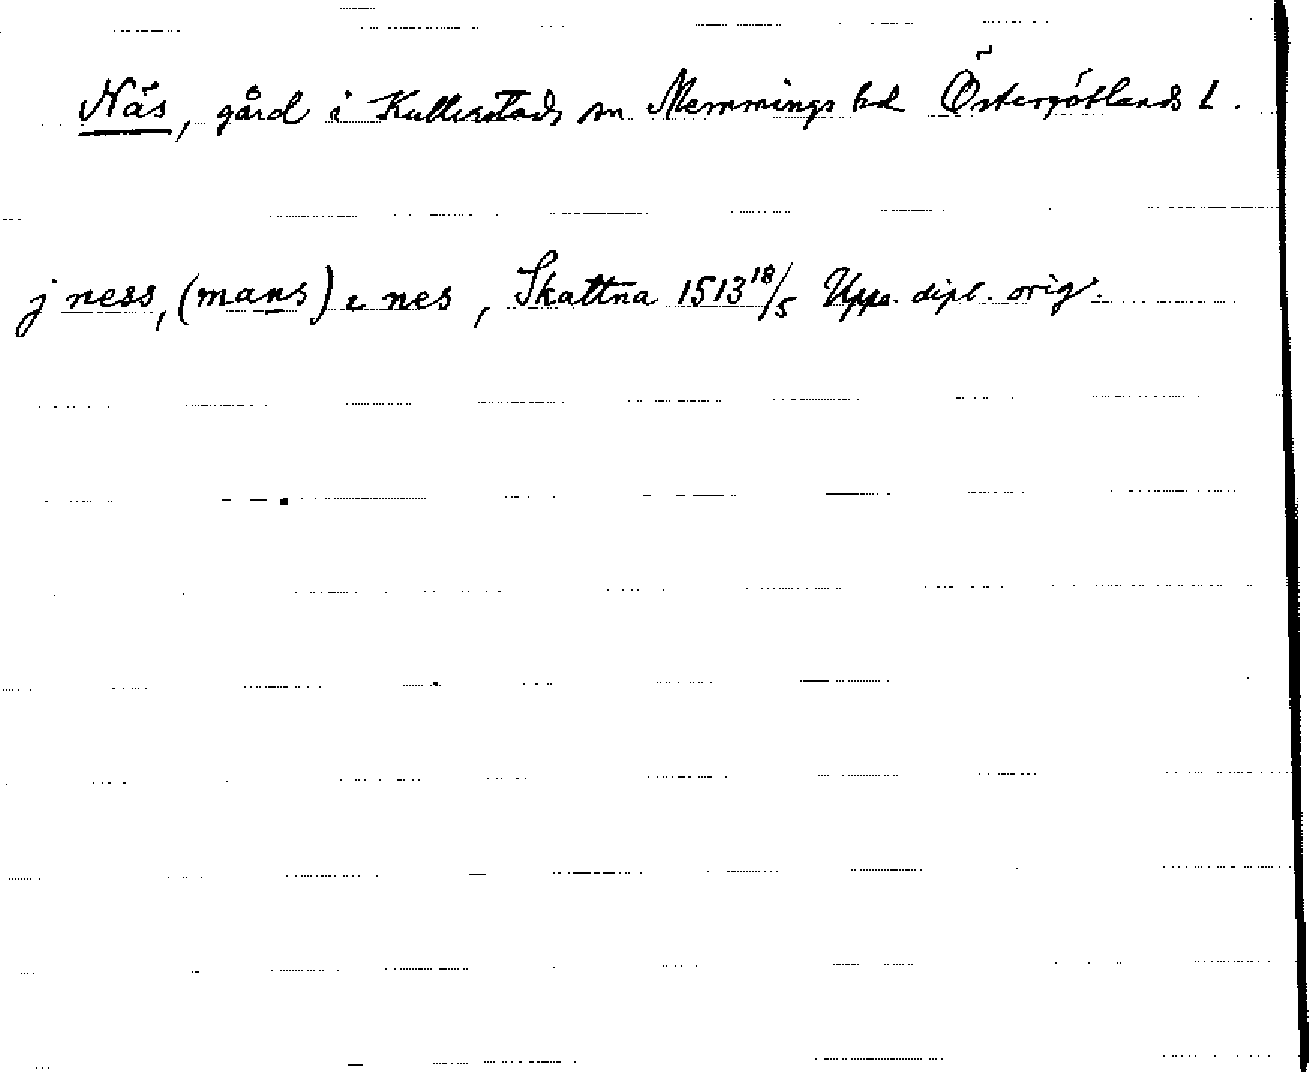 Näs, gård i Kullerstads sn Memmings hd Östergötlands l.
j ness, (mans) i nes, Skattna 1513 18/5 Upps. dipl. orig.